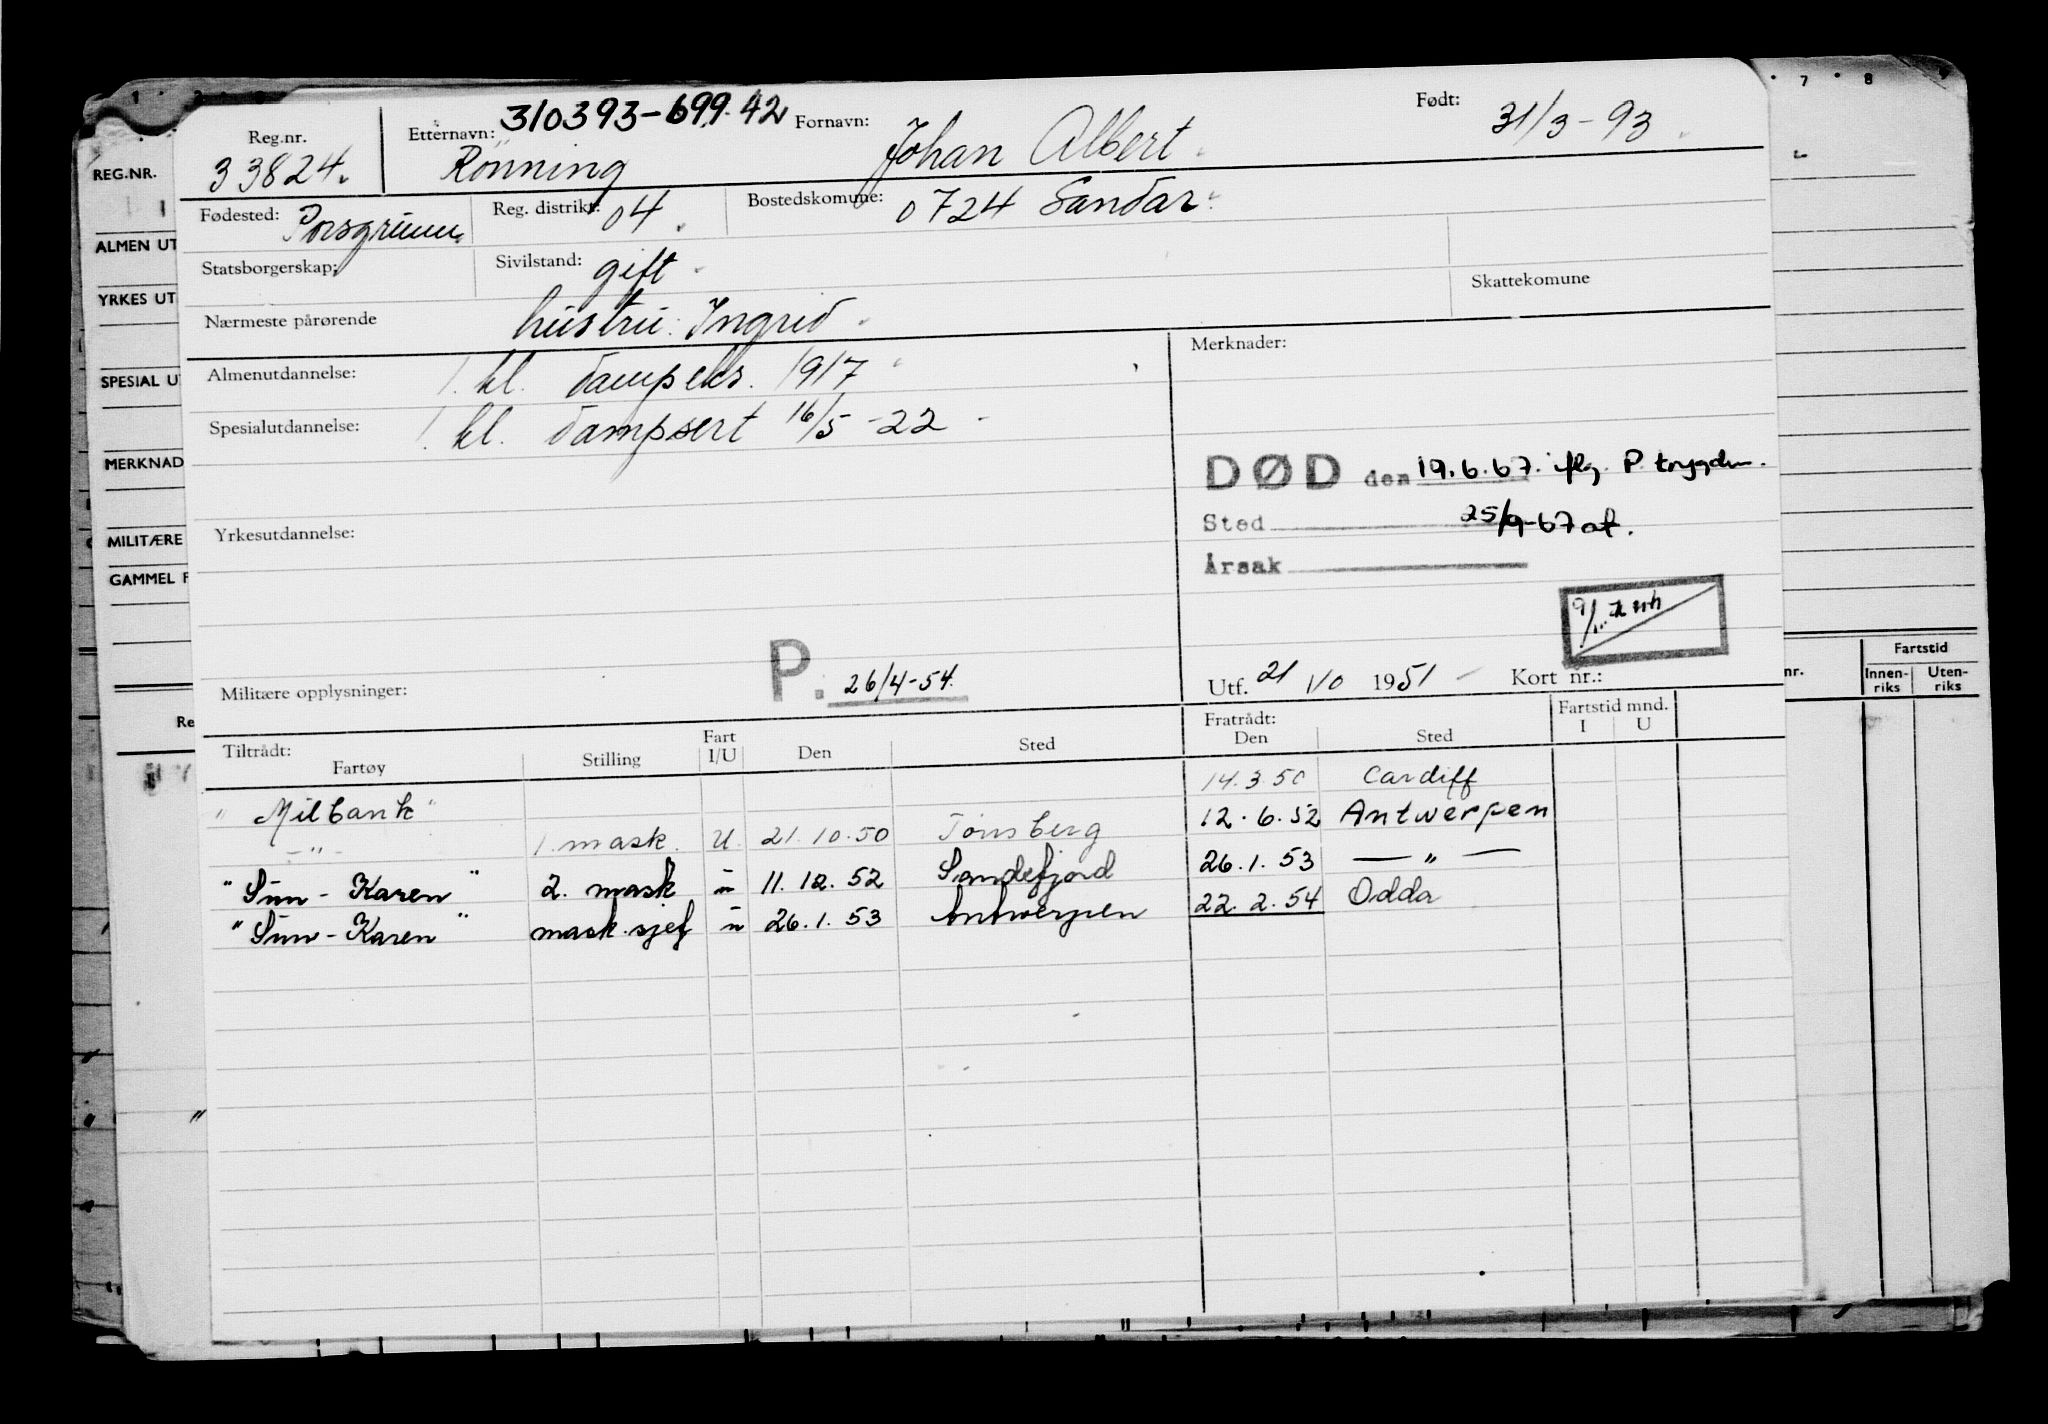 Reg.nr. Etternavn: 310393-699.42 Fornavn: Født:
33824. Rönning Johan Albert 31/3-93
Fødested: Porsgrunn Reg. distrikt: 04. Bostedskomune: 0724 Sandar
Statsborgerskap: Sivilstand: gift Skattekomune
Nærmeste pårørende hustru: Ingrid
Almenutdannelse: 1. kl. dampeks. 1917 Merknader:
Spesialutdannelse: 1. kl. dampsert 16/5-22
DØD den 19.6.67. iflg. P. trygden.
Sted 25/9-67
Årsak
Yrkesutdannelse:
Militære opplysninger: P. 26/4-54. Utf. 21/10 1951 Kort nr.:
Tiltrådt: Fratrådt: Fartstid mnd.
Fartøy Stilling Fart I/U Den Sted Den Sted I U
"Milbank" 14.3.50 Cardiff
-"- 1. mask. U. 21.10.50 Tønsberg 12.6.52 Antwerpen
"Sun-Karen" 2. mask u 11.12.52 Sandefjord 26.1.53 — " —
"Sun-Karen" mask.sjef u 26.1.53 Antwerpen 22.2.54 Odda
REG.NR.
ALMEN UT
YRKES UT
SPESIAL U
MERKNAD
MILITÆRE
GAMMEL F
Re
7 8
nr. Fartstid
Innen-riks Uten-riks